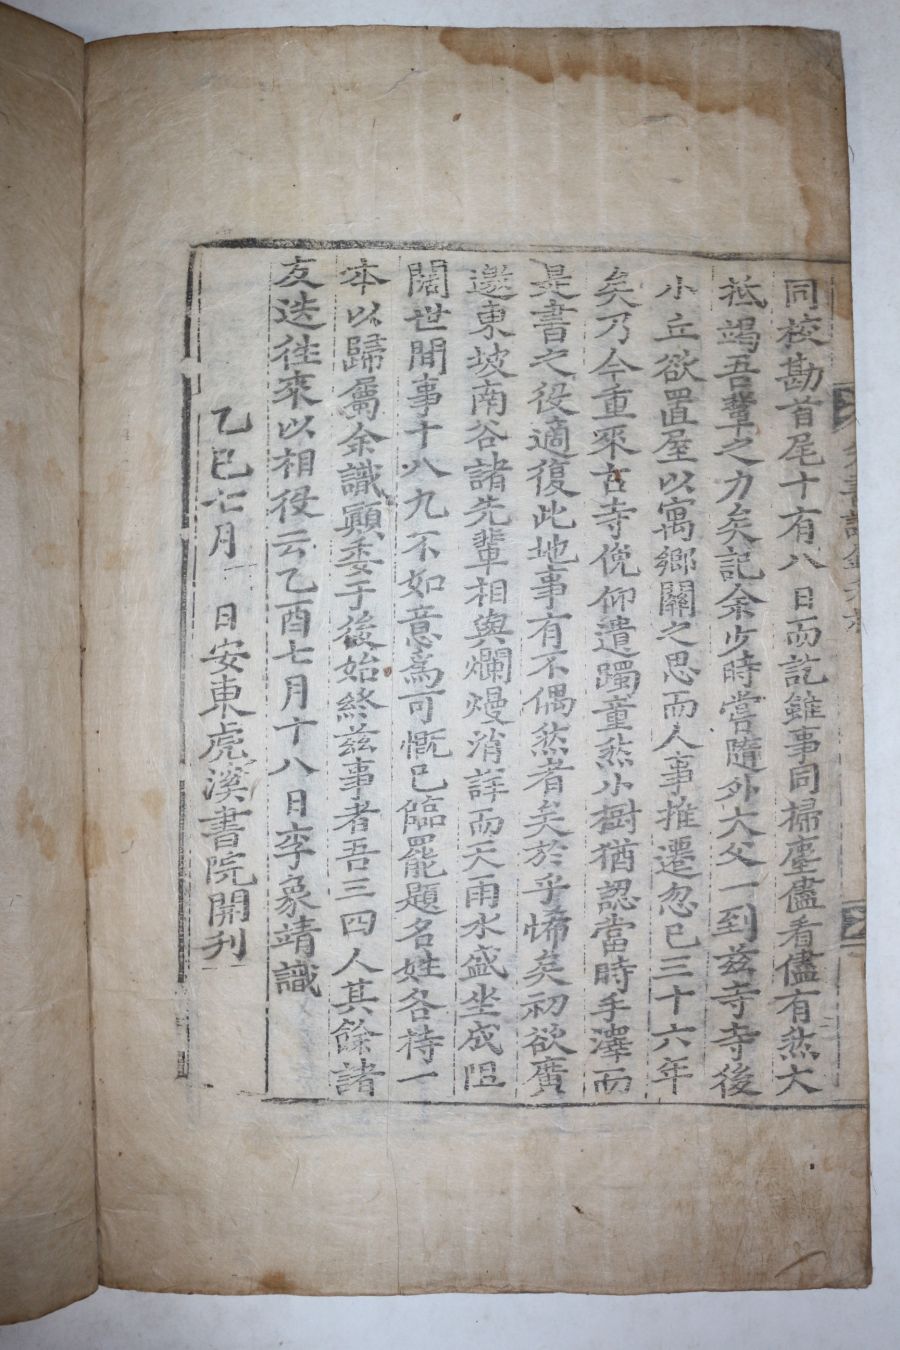 同校勘首尾十有八日而訖雖事同掃塵儘看儘有然大
抵竭吾輩之力矣記余少時嘗隨外大父一到玆寺寺後
小丘欲置屋以寓鄉關之思而人事推遷忽已三十六年
矣乃今重來古寺俛仰遺躅童然小樹猶認當時手澤而
是書之役適復此地事有不偶然者矣於乎悕矣初欲廣
邀東坡南谷諸先輩相與爛熳消詳而天雨水盛坐成阻
闊世間事十八九不如意爲可慨已臨罷題名姓各持一
本以歸屬余識顚委于後始終玆事者吾三四人其餘諸
友迭往來以相役云乙酉七月十八日李象靖識
乙巳七月 日安東虎溪書院開刊